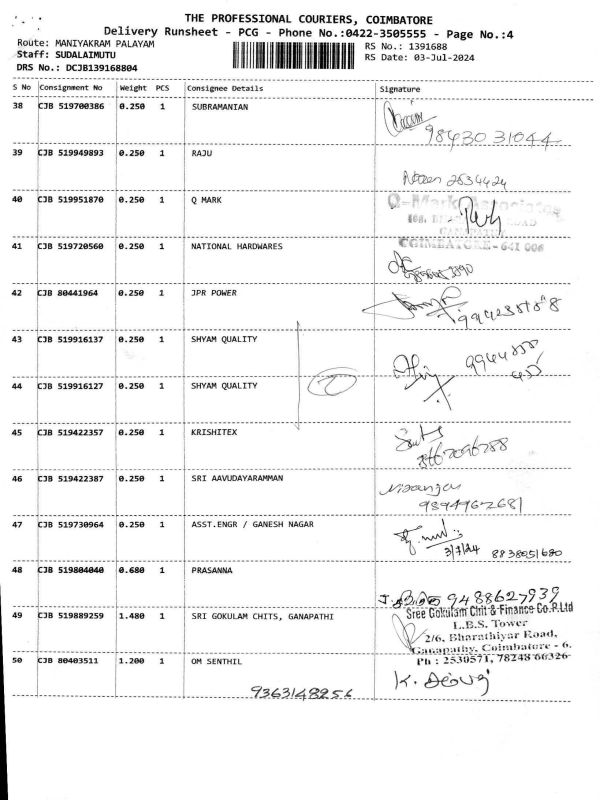 THE PROFESSIONAL COURIERS, COIMBATORE
Delivery Runsheet - PCG - Phone No.:0422-3505555 - Page No.:4
Route: MANIYAKRAM PALAYAM
Staff: SUDALAIMUTU
DRS No.: DCJB139168804
RS No.: 1391688
RS Date: 03-Jul-2024
S No Consignment No Weight PCS Consignee Details Signature
38 CJB 519700386 0.250 1 SUBRAMANIAN
9843031044
39 CJB 519949893 0.250 1 RAJU
2634424
40 CJB 519951870 0.250 1 Q MARK
Q-Mark Associates
COIMBATORE - 641 006
41 CJB 519720560 0.250 1 NATIONAL HARDWARES
42 CJB 80441964 0.250 1 JPR POWER
43 CJB 519916137 0.250 1 SHYAM QUALITY
44 CJB 519916127 0.250 1 SHYAM QUALITY
45 CJB 519422357 0.250 1 KRISHITEX
46 CJB 519422387 0.250 1 SRI AAVUDAYARAMMAN
Niranjan
9894967681
47 CJB 519730964 0.250 1 ASST.ENGR / GANESH NAGAR
3/7/24
48 CJB 519804040 0.680 1 PRASANNA
9488627939
49 CJB 519889259 1.480 1 SRI GOKULAM CHITS, GANAPATHI
Sree Gokulam Chit & Finance Co.P.Ltd
L.B.S. Tower
2/6, Bharathiyar Road,
Ganapathy, Coimbatore - 6.
Ph : 2530571, 78248 66326
50 CJB 80403511 1.200 1 OM SENTHIL
9363148256